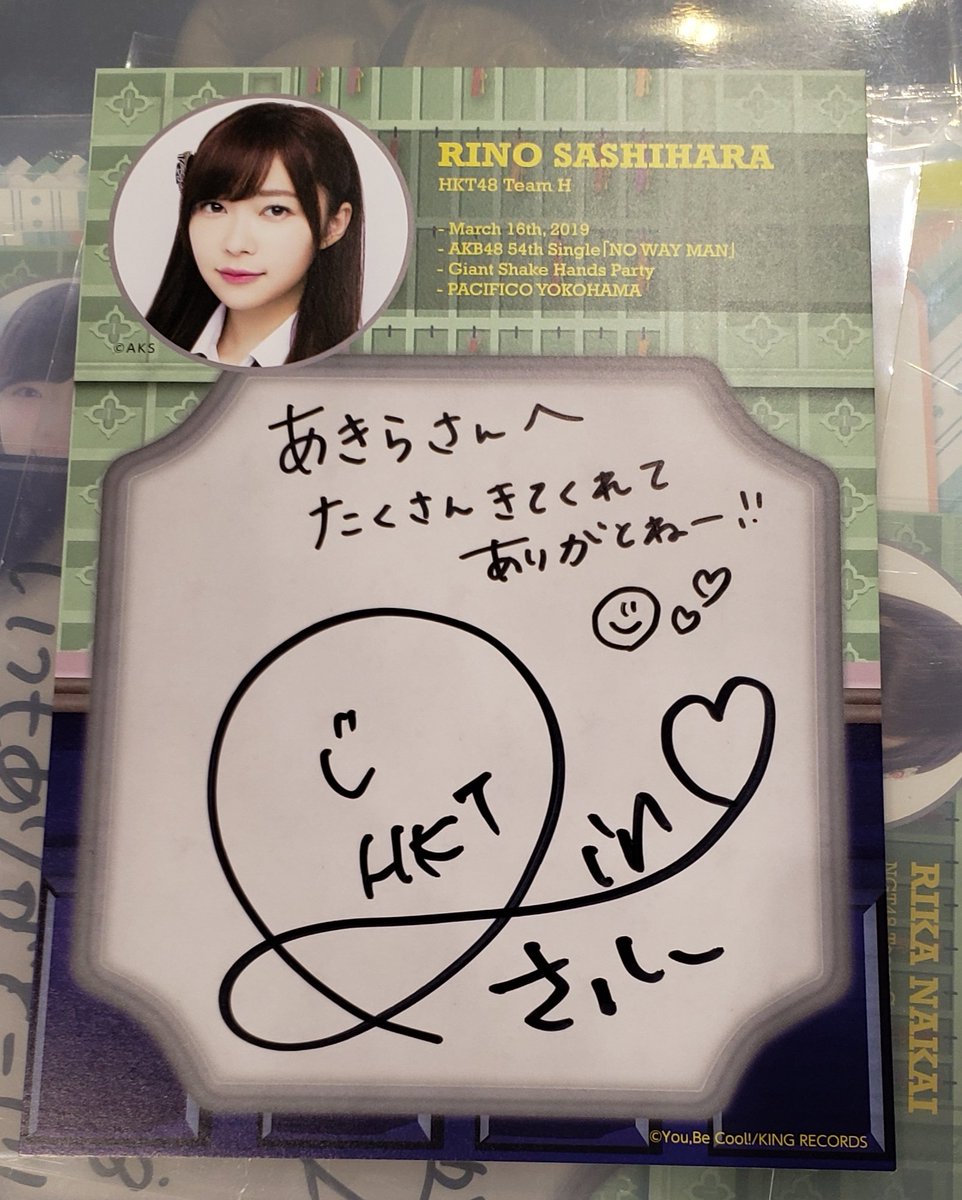 RINO SASHIHARA
HKT48 Team H
- March 16th, 2019
- AKB48 54th Single「NO WAY MAN」
- Giant Shake Hands Party
- PACIFICO YOKOHAMA
©AKS
あきらさんへ
たくさんきてくれて
ありがとねー!!
HKT
in
さしこ
©You,Be Cool!/KING RECORDS
RIKA NAKAI